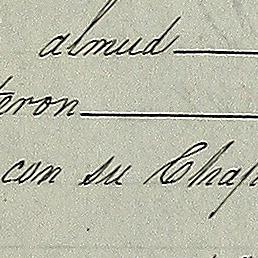 almud
teron
con su Chap